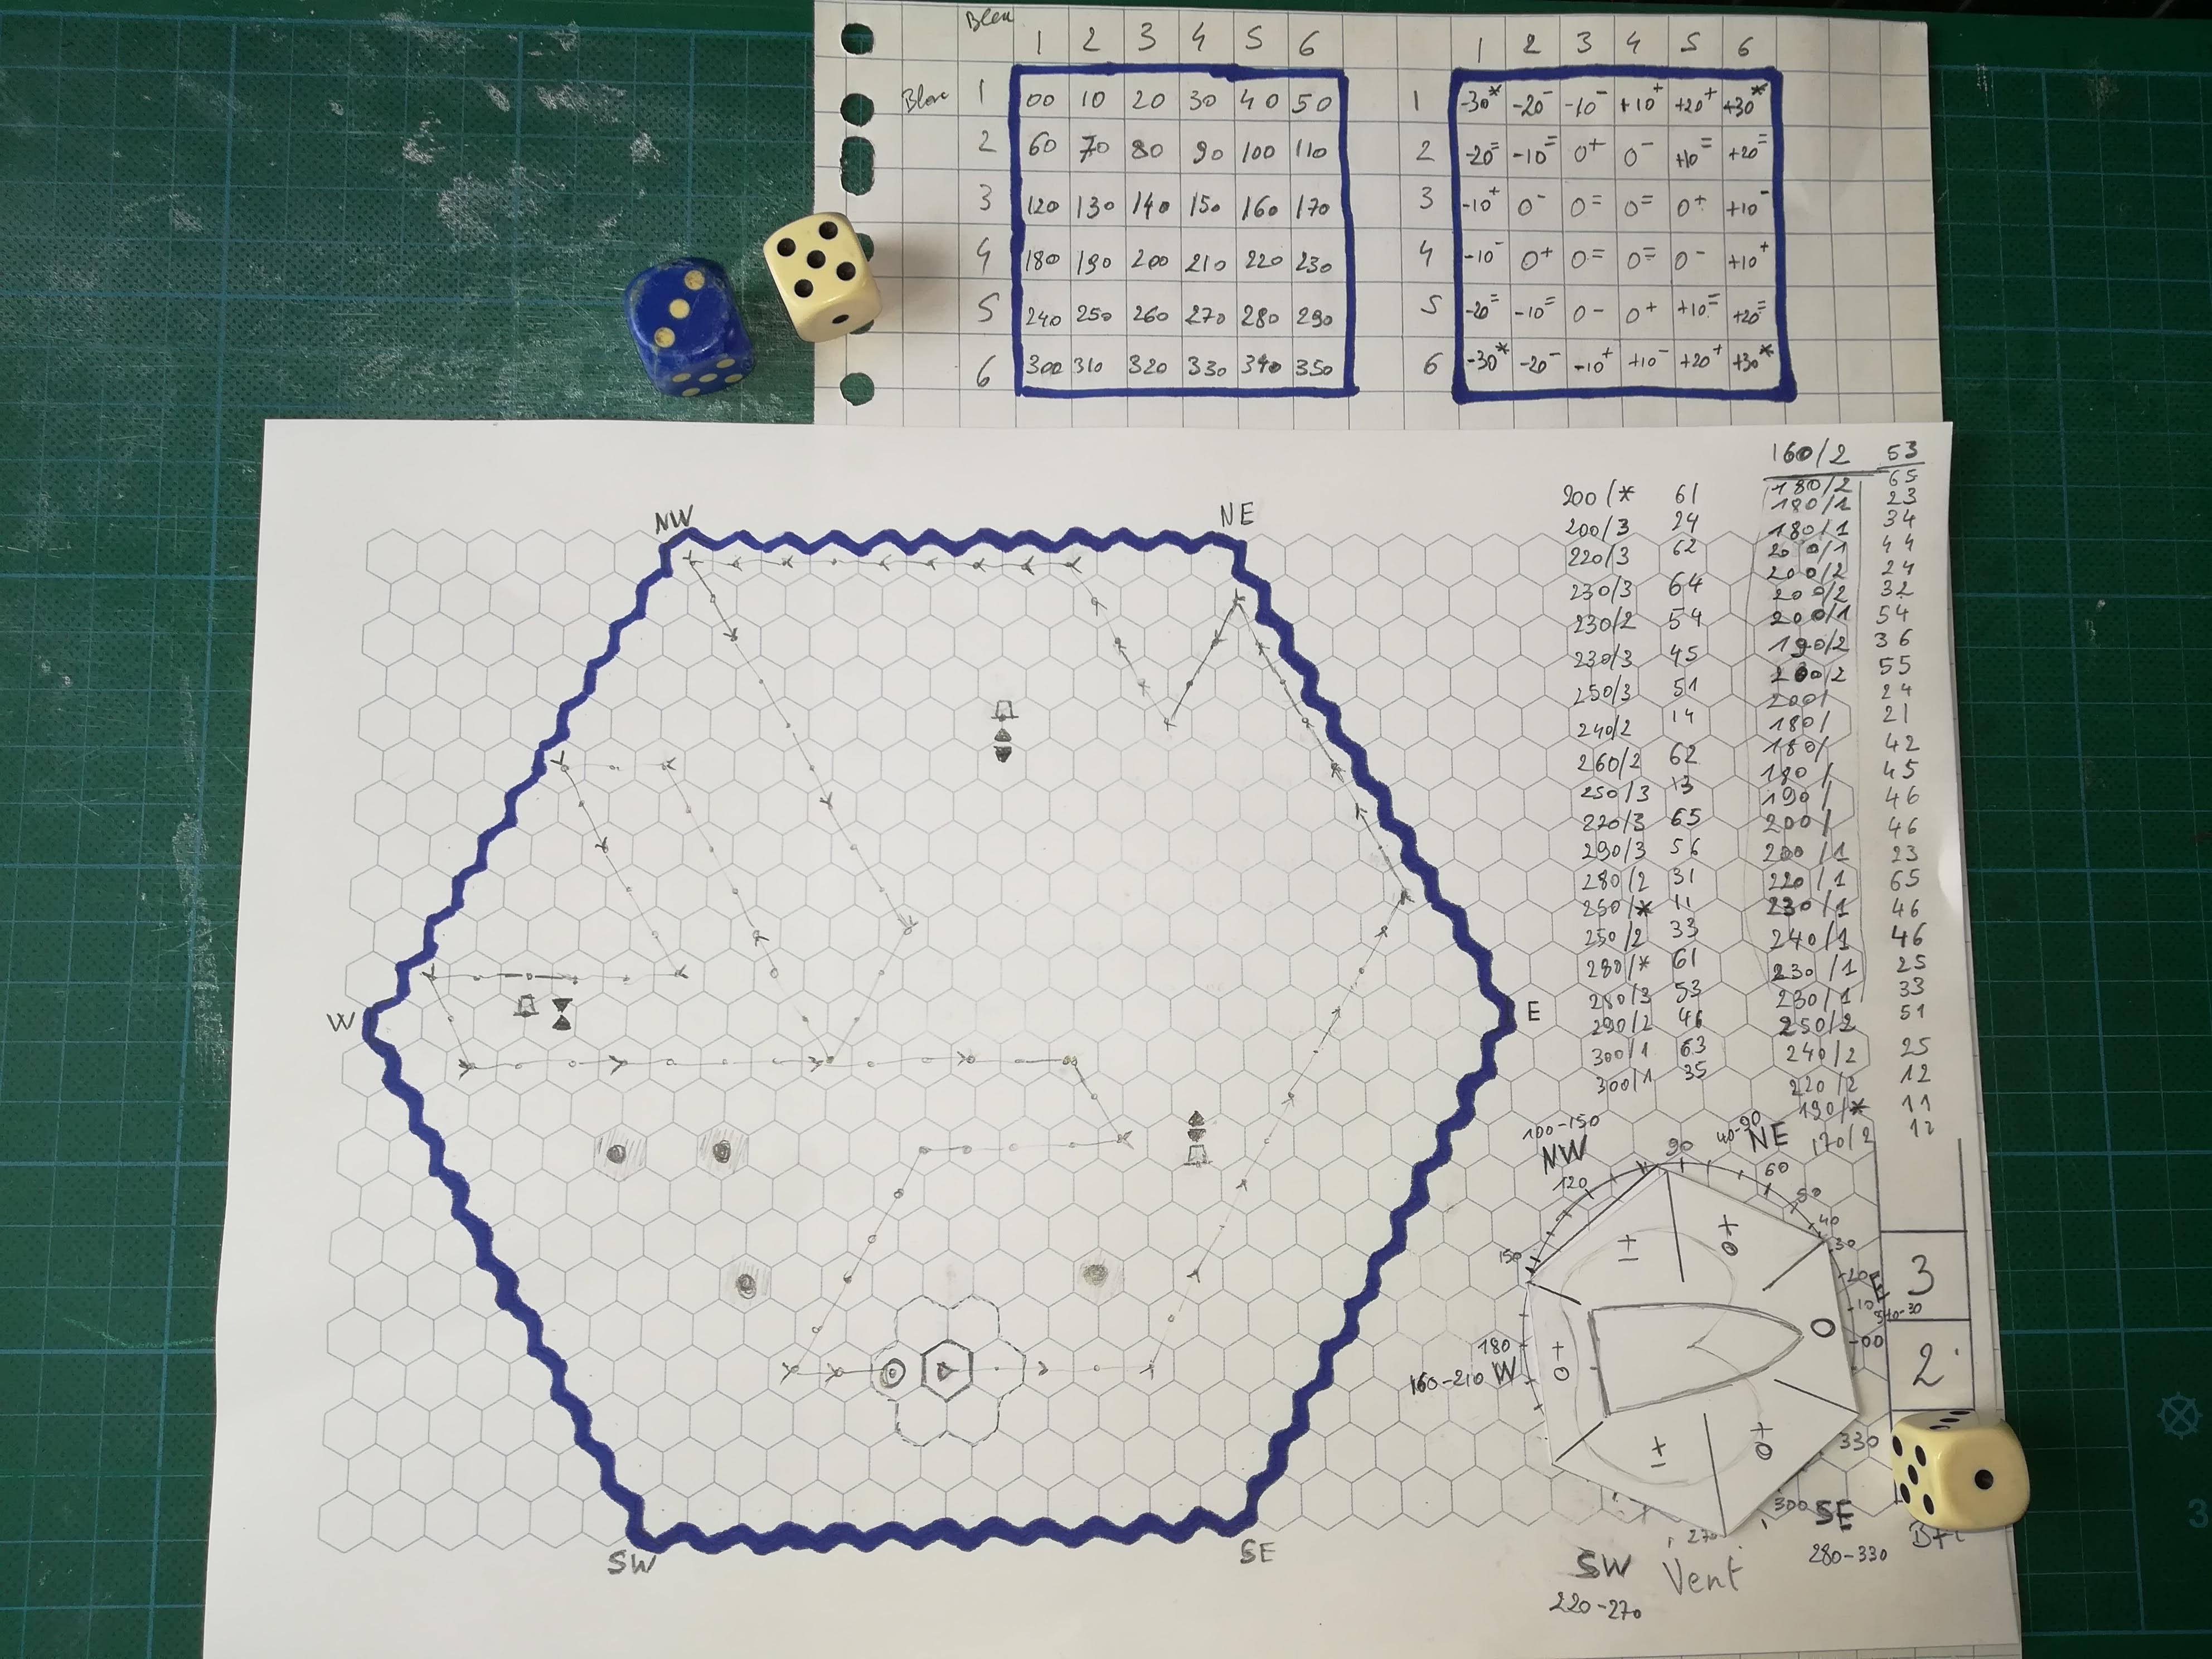 Bleu 1 2 3 4 5 6
1 2 3 4 5 6
1 00 10 20 30 40 50
2 60 70 80 90 100 110
3 120 130 140 150 160 170
4 180 190 200 210 220 230
5 240 250 260 270 280 290
6 300 310 320 330 340 350
1 -30* -20- -10- +10+ +20+ +30*
2 -20= -10= 0+ 0- +10= +20=
3 -10+ 0- 0= 0= 0+ +10-
4 -10- 0+ 0= 0= 0- +10+
5 -20= -10= 0- 0+ +10= +20=
6 -30* -20- -10+ +10- +20+ +30*
NW NE
W E
SW SE
200/* 61
200/3 24
220/3 62
230/3 64
230/2 54
230/3 45
250/3 51
240/2 14
260/2 62
250/3 13
290/3 56
280/2 31
250/* 11
250/2 33
280/* 61
280/3 53
290/2 46
300/1 63
300/1 35
160/2 53
180/2 65
180/1 23
180/1 34
200/1 44
200/2 24
200/2 32
200/1 54
190/2 36
200/2 55
200/ 24
180/ 21
180/ 42
180/ 45
190/ 46
200/ 46
200/1 23
220/1 65
230/1 46
240/1 46
230/1 25
230/1 33
250/2 51
240/2 25
220/2 12
190/* 11
170/2 12
100-150
NW
40-90
NE
90
120
60
50
40
30
150
20
E
10
340-30
00
180
160-210 W
330
300
SE
280-330
270
SW
Vent
220-270
± +0
+0 0
± +0
3
2